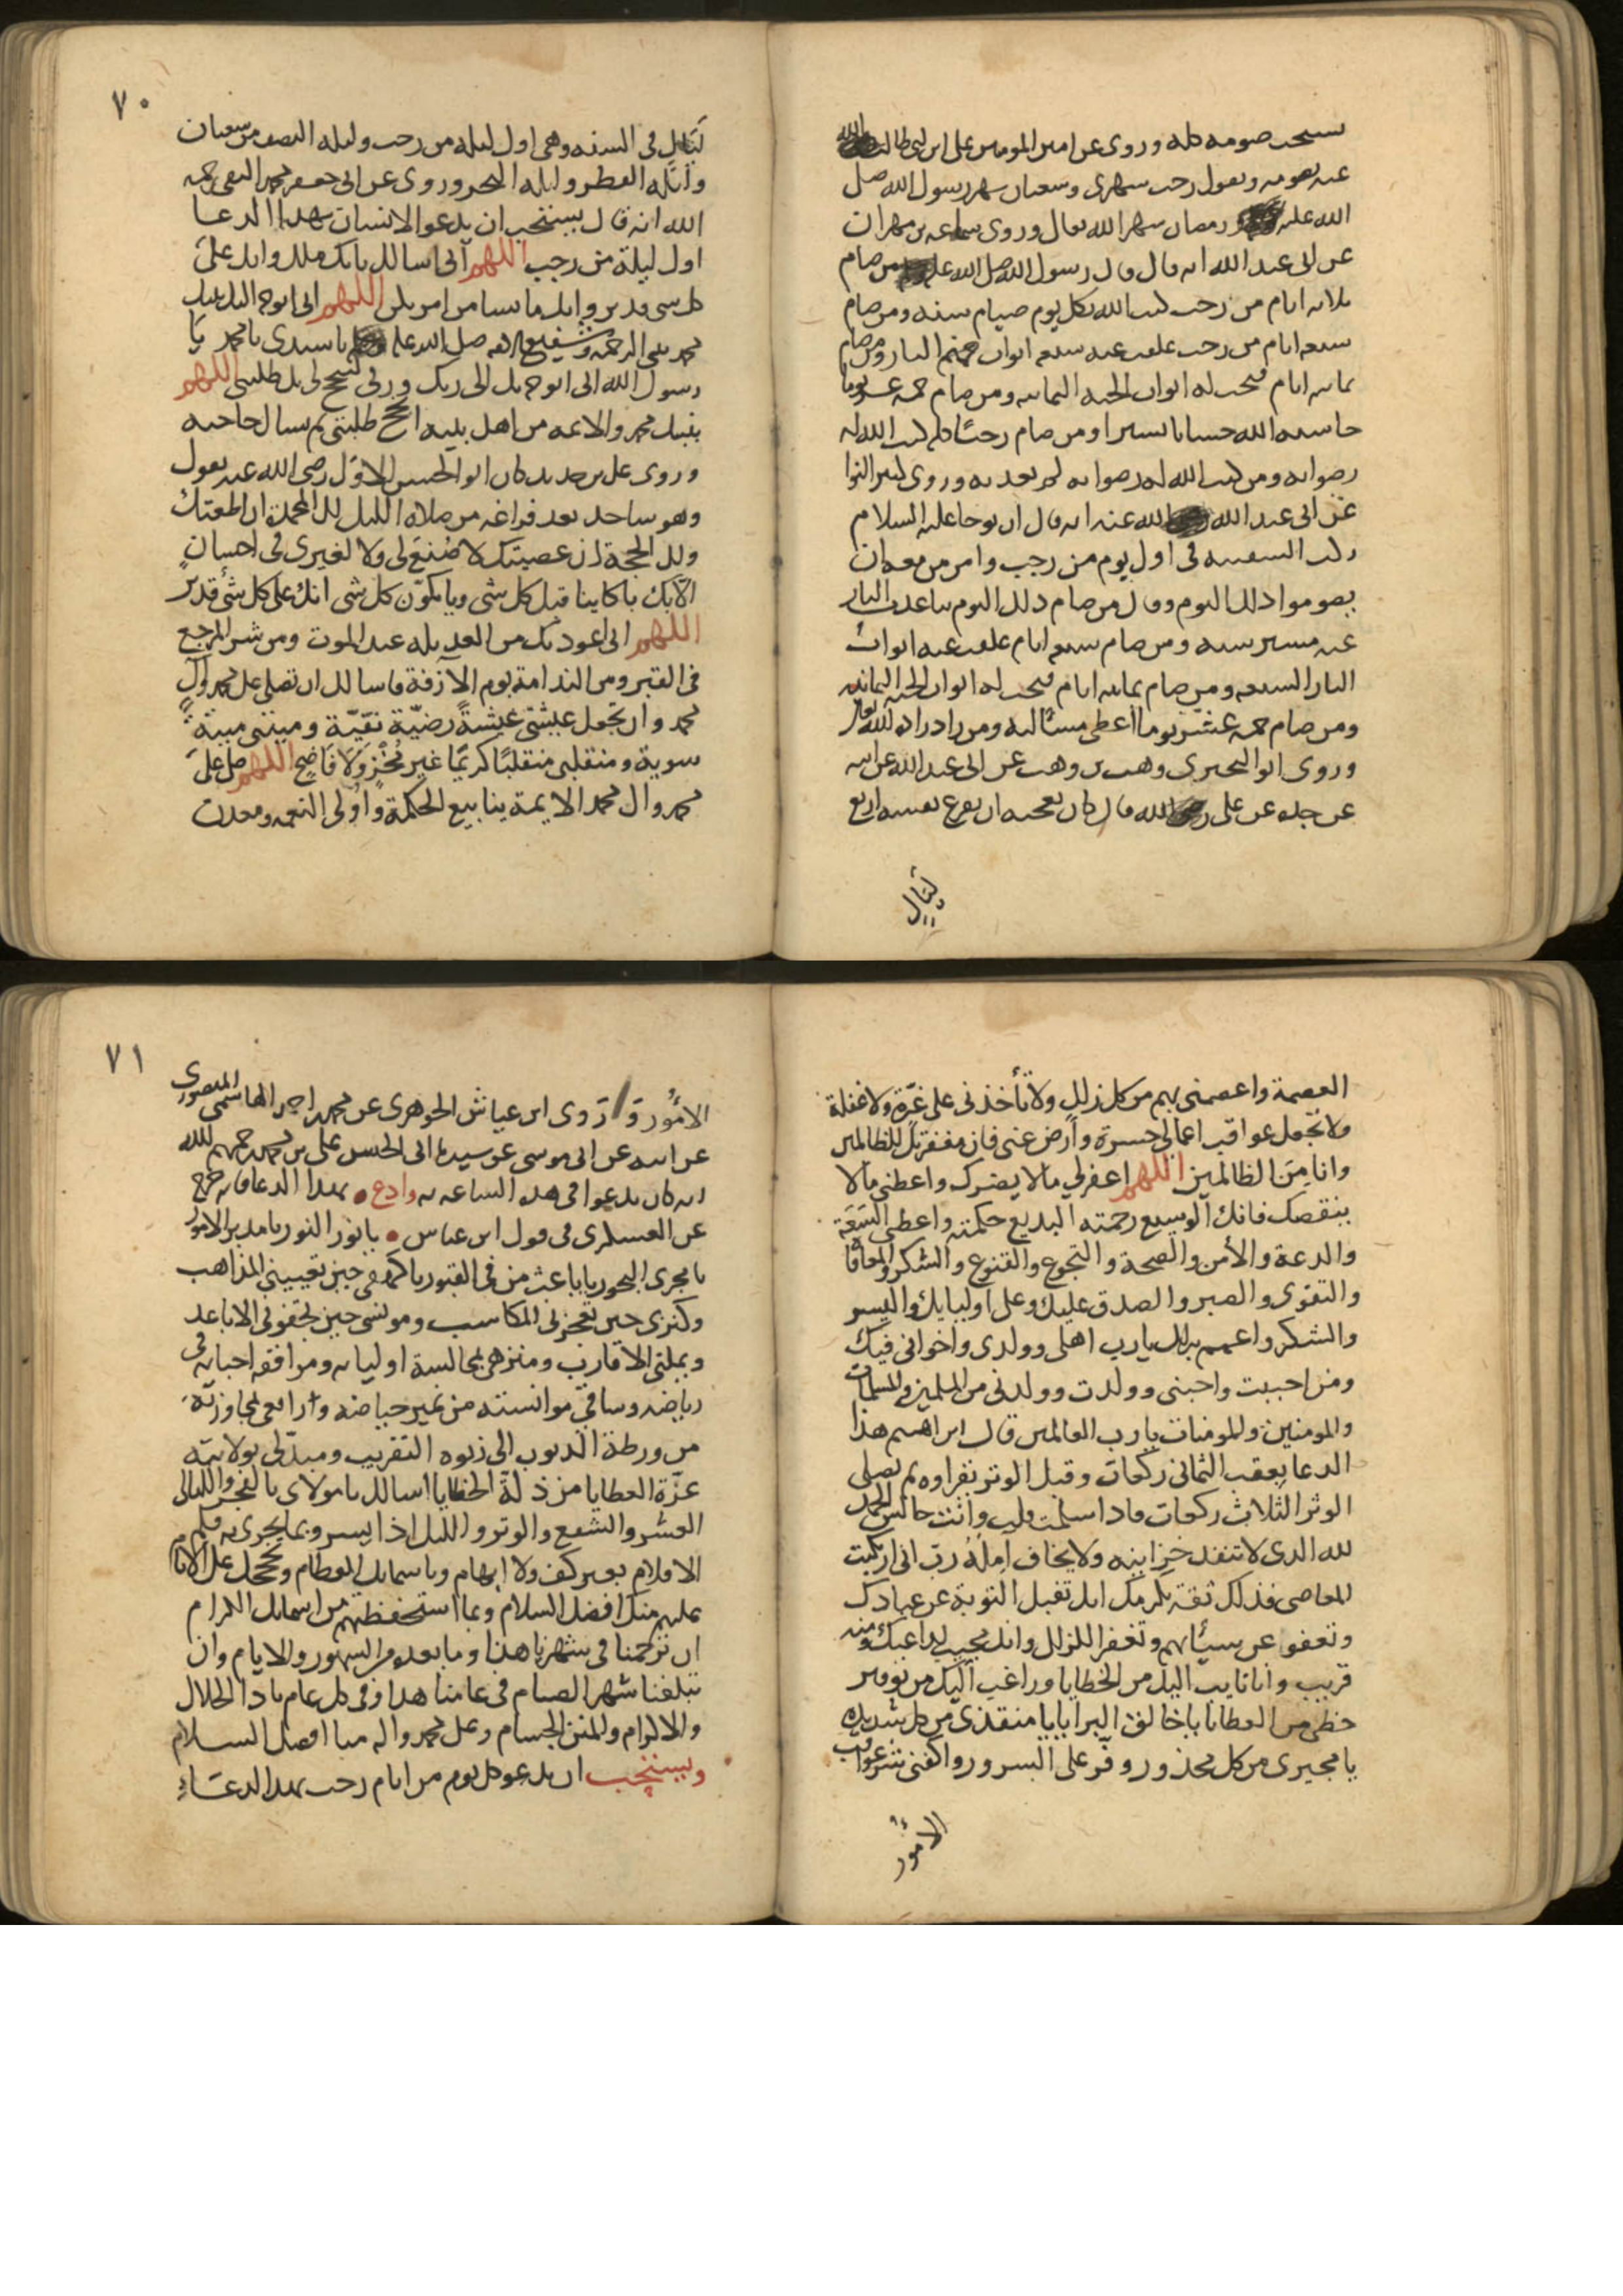 يستحب صومه كله وروى عن امير المومنين على ابن ابى طالب
عنه يصومه ويقول رجب شهرى وشعبان شهر رسول الله صلى
الله عليه ورمضان شهر الله تعالى وروى سماعه بن مهران
عن ابى عبد الله انه قال قال رسول الله صلى الله عليه من صام
ثلاثه ايام من رجب كتب الله بكل يوم صيام سنه ومن صام
سبعه ايام من رجب غلقت عنه سبعه ابواب جهنم النار ومن صام
ثمانيه ايام فتحت له ابواب الجنه الثمانيه ومن صام خمسة عشر يوما
حاسبه الله حسابا يسيرا ومن صام رجبًا كله كتب الله له
رضوانه ومن كتب الله له رضوانه لم يعذبه وروى كثير النوا
عن ابى عبد الله الله عنه انه قال ان نوحا عليه السلام
ركب السفينه فى اول يوم من رجب وامر من معه ان
يصوموا ذلك اليوم وقال من صام ذلك اليوم تباعدت النار
عنه مسير سنه ومن صام سبعه ايام غلقت عنه ابوابُ
النار السبعه ومن صام ثمانيه ايام فتحت له ابواب الجنه الثمانيه
ومن صام خمسة عشر يوما اعطى مسألته ومن زاد زاده الله تعالى
وروى ابو البحترى وهب بن وهب عن ابى عبد الله عن ابيه
عن جده عن على رضى الله قال كان يعجبه ان يفرغ نفسه اربع
لَيَالٍ
٧٠
لَيَالٍ فى السنه وهى اول ليله من رجب وليله النصف من شعبان
وليله الفطر وليله النحر وروى عن ابى جعفر محمد التقى رحمه
الله انه قال يستحب ان يدعو الانسان بهذا الدعا
اول ليلة من رجب اللهم انى اسالك بانك ملك وانك علىَ
كل شى قدير وانك ما تشا من امر يكن اللهم انى اتوجه اليك بنبيك
محمد نبى الرحمه وشفيع صلى الله عليه يا سيدى يا محمد يَا
رسول الله انى اتوجه بك الى ربك وربى لينجح لى بك طلبتى اللهم
بنبيك محمد والائمه من اهل بيته انجح طلبتى ثم يسال حاجته
وروى على بن حديد كان ابو الحسن الاول رضى الله عنه يقول
وهو ساجد بعد فراغه من صلاه الليل لك المحمدة ان اطعتك
ولك الحجة ان عصيتك لا صُنعَ لى ولا لغيرى فى احسانٍ
الّا بك يا كاينا قبل كل شى ويا مكوّن كل شى انك على كل شئٍ قدير
اللهم انى اعوذ بك من العديله عند الموت ومن شر المرجع
فى القبر ومن الندامة يوم الازفة فاسالك ان تصلى على محمد وآلِ
محمد وان تجعل عيشتى عيشةً رضيّة نقيّة وميتتى ميتةً
سوية ومنقلبى منقلبًا كريمًا غير مُخْزٍ وَلَا فَاضِحٍ اللهم صل علىَ
محمد وال محمد الايمة ينابيع الحكمة واولى النعمه ومعدن
العصمة واعصمنى بهم من كل زللٍ ولا تأخذنى على غرّة ولا غفلة
ولا تجعل عواقب اعمالى حسرة وأرض عنى فان مغفرتك للظالمين
وانا مِنَ الظالمين اللهم اغفر لي ما لا يضرك واعطنى ما لا
ينقصك فانك الوسيع رحمته البديع حكمته واعطى السَعَة
والدعة والأمن والصحة والنجوع والقنوع والشكر والمعافا
والتقوى والصبر والصدق عليك وعلى اوليايك واليسر
والشكر واعمم بذلك يا رب اهلى وولدى واخوانى فيك
ومن احببت واحبنى وولدت وولدنى من المسلمين والمسلمات
والمومنين والمومنات يا رب العالمين قال ابراهيم هذا
الدعا يعقب الثمانى ركعات وقبل الوتر تقراوه ثم تصلى
الوتر الثلاث ركعات فاذا سلمت قلت وانت جالس الحمد
لله الذى لا تنفد خزاينه ولا يخاف امِنُهُ ربّ انى ارتكبت
المعاصى فذلك ثقة بكرمك انك تقبل التوبة عن عبادك
وتعفو عن سيئاتهم وتغفر الزلل وانك مجيب لداعيك ومنه
قريب وانا تايب اليك من الخطايا وراغب اليك من توفير
حظى من العطايا يا خالق البرايا يا منقذى من كل شديدة
يا مجيرى من كل محذور وفّر على السرور واكفنى شر عواقب
الأمُور
٧١
الأمُور وَ رَوى ابن عياش الجوهرى عن محمد بن احمد الهاشمى المنصورى
عن ابيه عن ابى موسى عن سيدنا ابى الحسن على بن محمد رحمهم الله
انه كان يدعوا فى هذه الساعه به وادع • بهذا الدعا فانه خرج
عن العسكرى فى قول ابن عياش • يا نور النور يا مدبر الامور
يا مجرى البحور يا باعث من فى القبور يا كهفى حين تعيينى المذاهب
وكنزى حين تعجزنى المكاسب ومونسى حين تجفونى الاباعد
وتملنى الاقارب ومنزهى بمجالسة اوليائه ومرافقه احبائه فى
رياضه وساقي موانسته من نمير حياضه ورافعى بمجاوزتهَ
من ورطة الذنوب الى ربوه التقريب ومبدّلى بولايته
عزّة العطايا من ذلة الخطايا اسالك يا مولاى بالفجر والليالى
العشر والشفع والوتر والليل اذا يسر وبما يجرى به قلم
الاقلام بغير كف ولا إبهام وباسمائك العظام وبحججك على الانام
عليهم منك افضل السلام وبما استحفظتهم من اسمائك الكرام
ان ترحمنا فى شهرنا هذا وما بعده من الشهور والايام وان
تبلغنا شهر الصيام فى عامنا هذا وفى كل عام يا ذا الجلال
والاكرام والمنن الجسام وعلى محمد واله منا افضل السلام
ويستحب ان يدعو كل يوم من ايام رجب بهذا الدعَاءِ